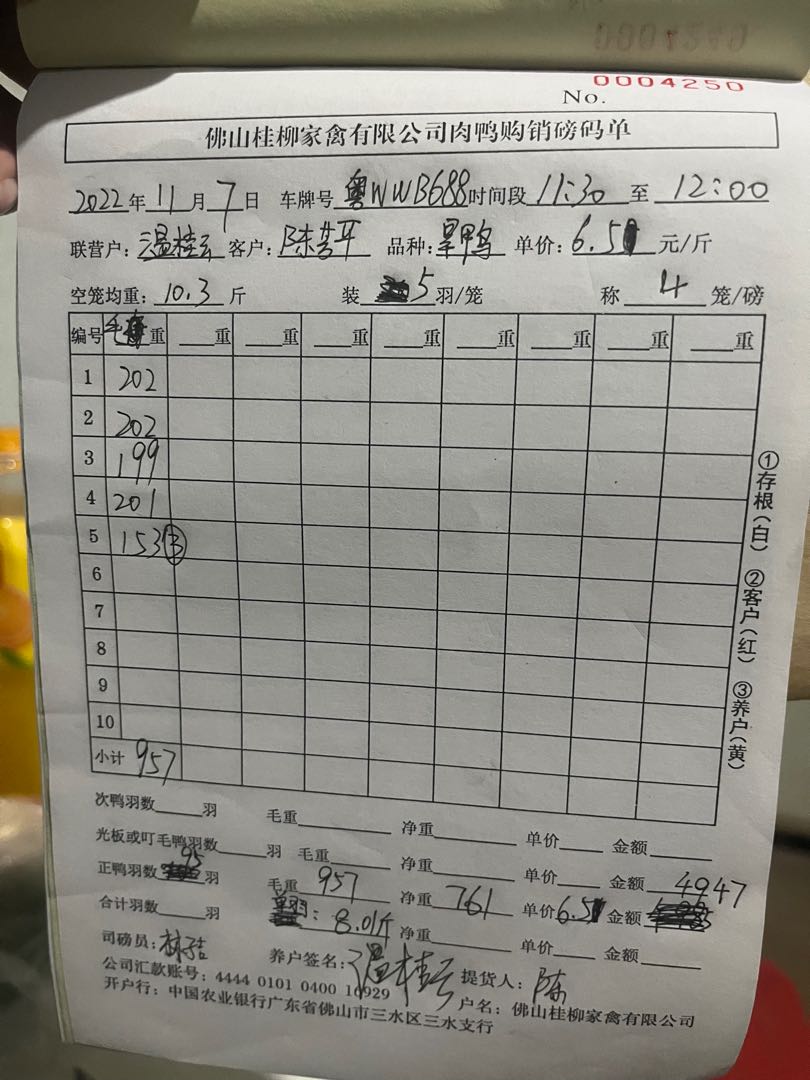 No. 0004250
佛山桂柳家禽有限公司肉鸭购销磅码单
2022年11月7日 车牌号 粤WWB688 时间段 11:30 至 12:00
联营户:温桂云 客户:陈 品种:旱鸭 单价:6.5 元/斤
空笼均重:10.3斤 装 5 羽/笼 称 4 笼/磅
编号 毛重 重 重 重 重 重 重 重 重
1 202
2 202
3 199
4 201
5 153 ③
6
7
8
9
10
小计 957
次鸭羽数 羽 毛重 净重 单价 金额
光板或叮毛鸭羽数 羽 毛重 净重 单价 金额
正鸭羽数 95 羽 毛重 957 净重 761 单价 6.5 金额 4947
合计羽数 羽 : 8.01斤 净重 单价 金额
司磅员:林 养户签名:温桂云 提货人:陈
公司汇款账号:4444 0101 0400 10929 户名:佛山桂柳家禽有限公司
开户行:中国农业银行广东省佛山市三水区三水支行
①存根(白) ②客户(红) ③养户(黄)